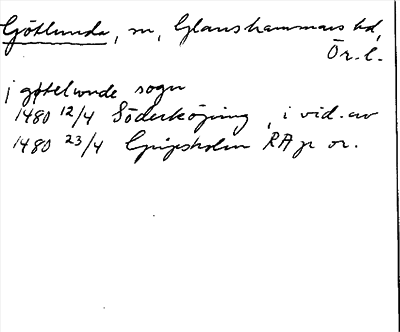 Götlunda, sn, Glanshammars hd,
Ör. l.
j gøtelwnde sogn
1480 12/4 Söderköping, i vid. av
1480 23/4 Gripsholm RA p or.